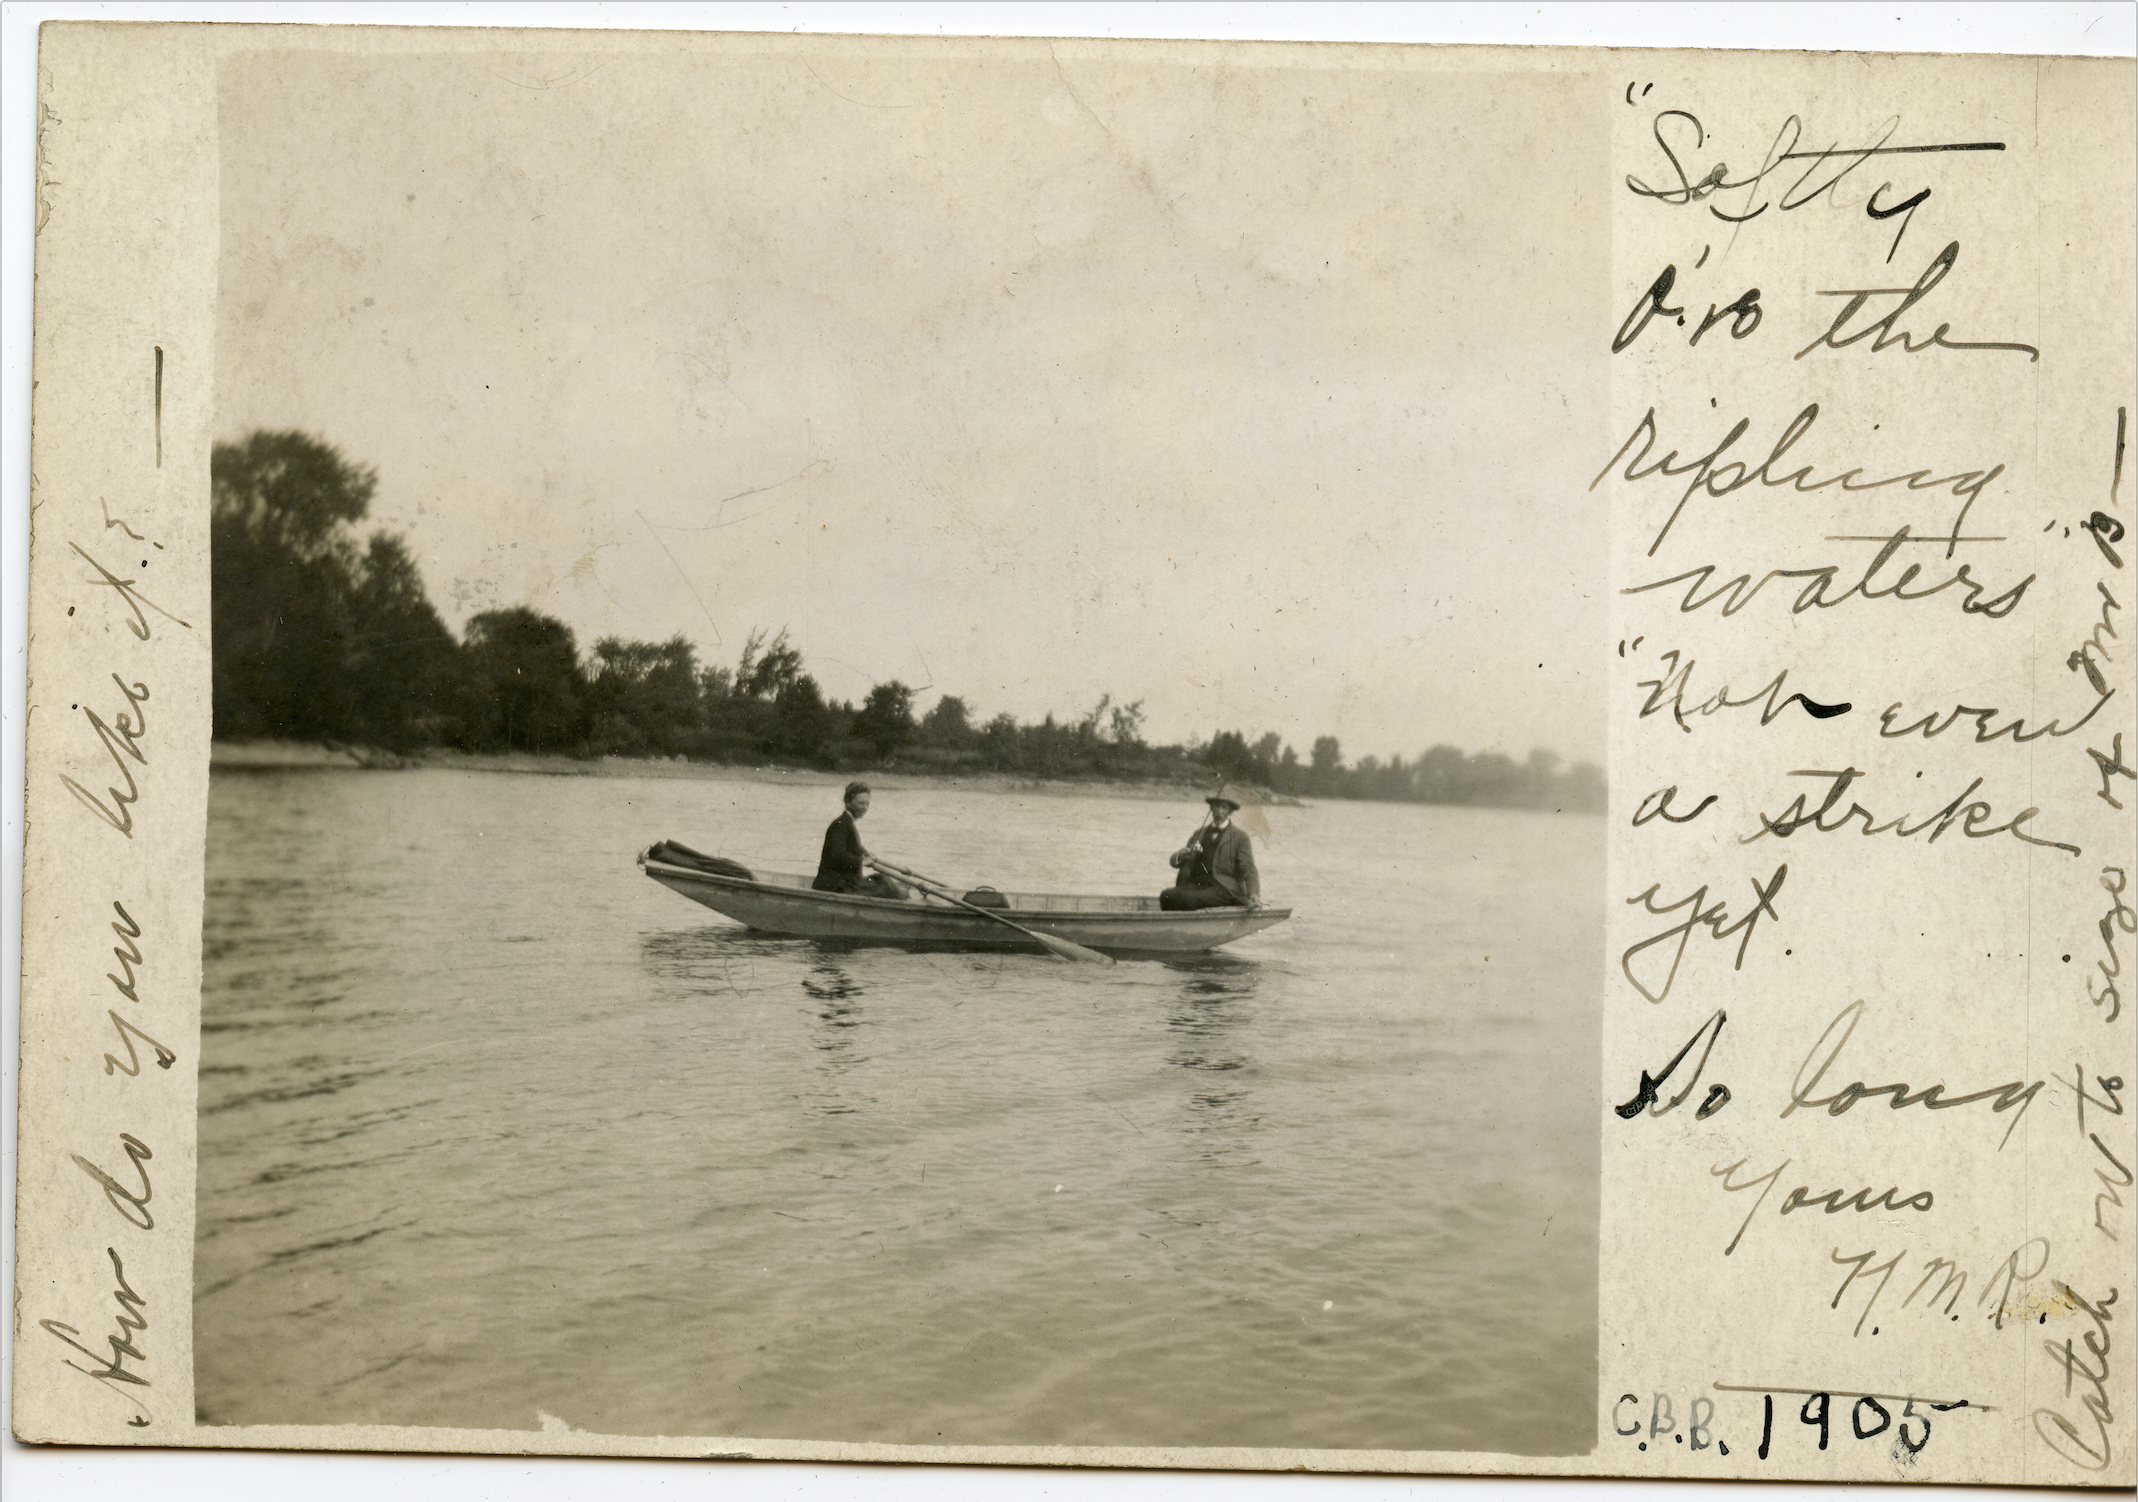 How do you like it? —
"Softly
O'ro the
ripling
waters"
"Not even
a strike
yet.
So long
Yours
H. M. R.
C.B.B. 1905
Catch on to size of Mr B —